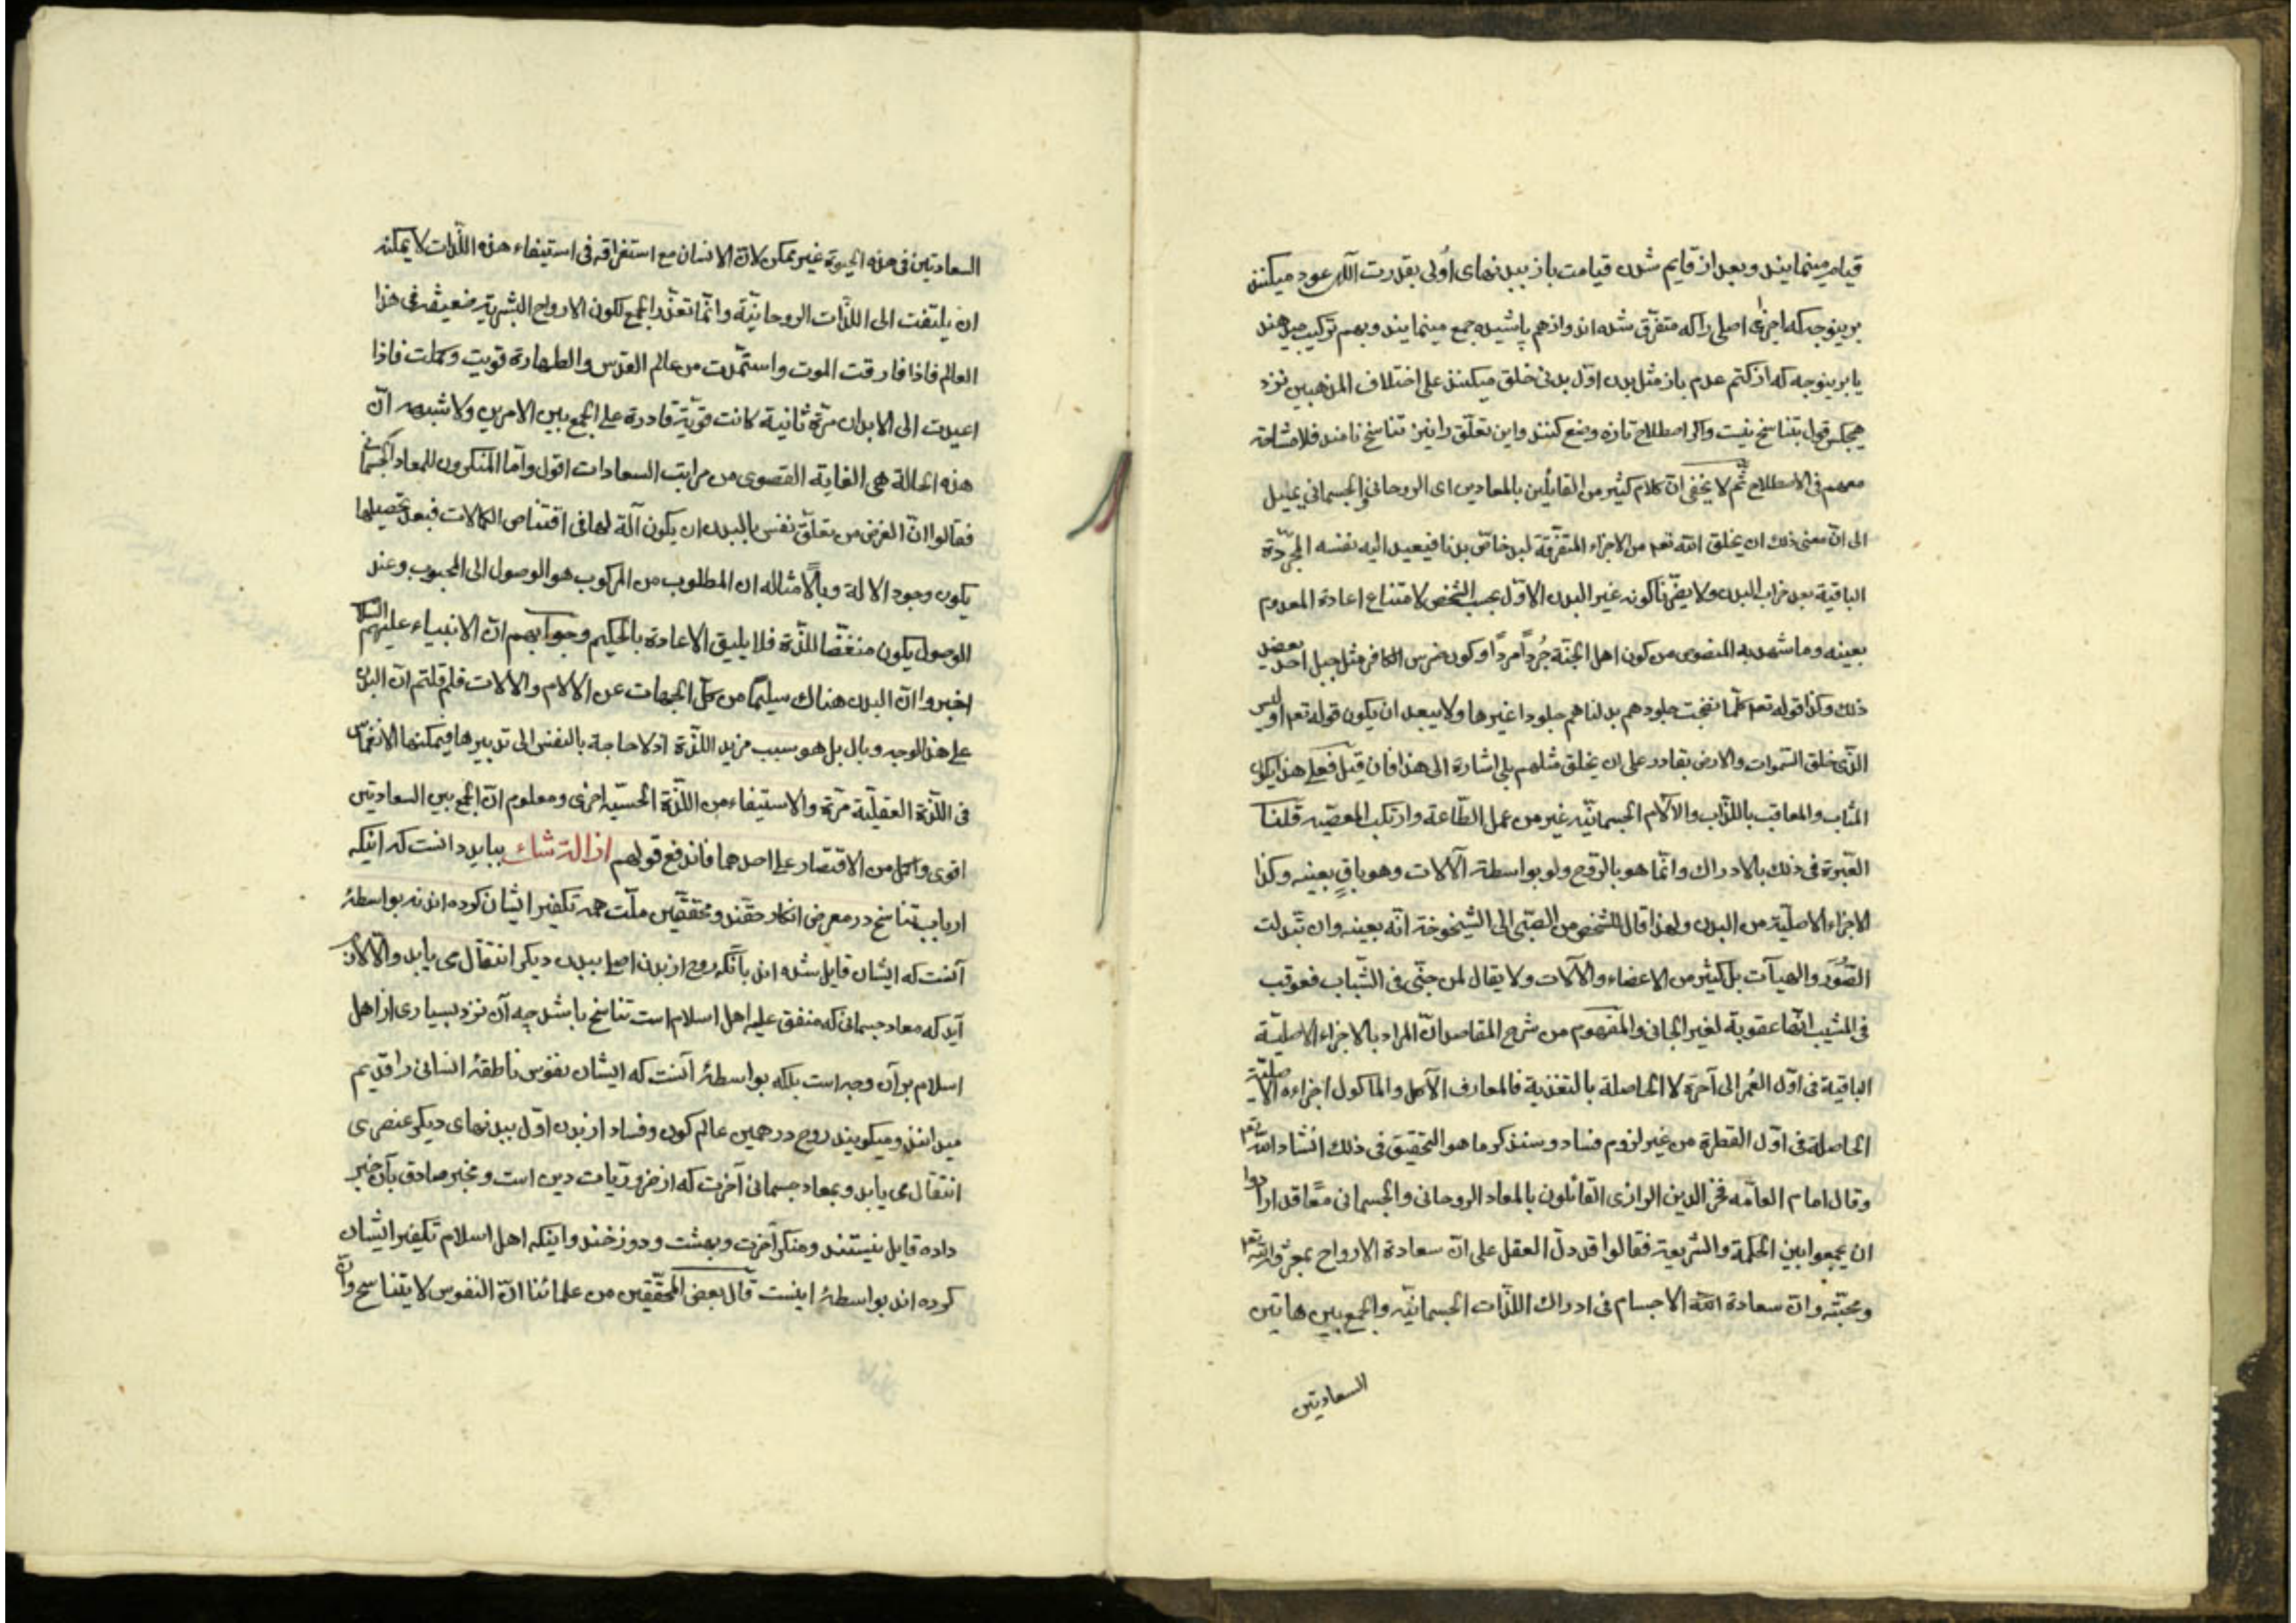 قیام مینمایند وبعد از قایم شدن قیامت باز ببدنهای اُولی بقدرت آلهی عود میکنند
برینوجه که اجزای اصلی را که متفرّق شده اند واز هم پاشیده جمع مینمایند وبهم ترکیب میدهند
یا برینوجه که از کتم عدم باز مثل بدن اوّل بدنی خلق میکنند علی اختلاف المذهبین نزد
هیچکس قول بتناسخ نیست واگر اصطلاح تازه وضع کنند واین تعلّق را نیز تناسخ نامند فلا مشاحة
معهم فی الاصطلاح ثُمّ لا یخفی انّ کلام کثیر من القایلین بالمعادین ای الروحانی والجسمانی یمیل
الی انّ معنی ذلك ان یخلق الله تعم من الاجزاء المتفرّقة لبدن خاصّ بدنا فیعید الیه نفسه المجرّدة
الباقیة بعد خراب البدن ولا یضرّنا کونه غیر البدن الاوّل بحسب الشخص لامتناع اعادة المعدوم
بعینه وما شهد به النصوص من کون اهل الجنّة جُرداً مُرداً وکون ضرس الکافر مثل جبل احد یعضد
ذلك وکذا قوله تعم کلّما نضجت جلودهم بدلناهم جلودا غیرها ولا یبعد ان یکون قوله تعم اولیس
الذی خلق السّموات والارض بقادر علی ان یخلق مثلهم بلی اشارة الی هذا فان قیل فعلی هذا یکون
المثاب والمعاقب باللذّات والآلام الجسمانیّه غیر من عمل الطّاعة وارتکب المعصیّه قلنا
العبرة فی ذلك بالادراك وانّما هو بالرّوح ولو بواسطة الآلات وهو باقٍ بعینه وکذا
الاجزاء الاصلیّة من البدن ولهذا قال للشخص من الصّبی الی الشیخوخة انّه بعینه وان تبدلت
الصُّوَر والهیآت بل کثیر من الاعضاء والآلات ولا یقال لمن جنی فی الشّباب فعوقب
فی المشیب انّها عقوبة لغیر الجانی والمفهوم من شرح المقاصد انّ المراد بالاجزاء الاصلیّة
الباقیة فی اوّل العُمر الی آخره لا الحاصلة بالتغذیة فالمعارف الآکل والماکول اجزاءه الاصلیّة
الحاصلة فی اوّل الفطرة من غیر لزوم فساد وسنذکر ما هو التحقیق فی ذلك انشاد الله تعم
وقال امام العامّه فخر الدین الرازی القائلون بالمعاد الروحانی والجسمانی معًا قد ارادوا
ان یجمعوا بین الحکمة والشریعة فقالوا قد دلّ العقل علی انّ سعادة الارواح بمعرفة الله تعم
ومحبّته وانّ سعادة الاجسام فی ادراك اللذّات الجسمانیّه والجمع بین هاتین
السعادتین
السعادتین فی هذه الحیوة غیر ممکن لانّ الانسان مع استغراقه فی استیفاء هذه اللّذات لا یمکنه
ان یلتفت الی اللذّات الروحانیّة وانّما تعذّر الجمع لکون الارواح البشریّة ضعیفة فی هذا
العالم فاذا فارقت الموت واستمدّت من عالم القدس والطهارة قویت وکملت فاذا
اعیدت الی الابدان مرّة ثانیة کانت قویّة قادرة علی الجمع بین الامرین ولا شبهه انّ
هذه الحالة هی الغایة القصوی من مراتب السعادات اقول وامّا المنکرون للمعاد الجسمانی
فقالوا انّ الغرض من تعلّق نفس بالبدن ان یکون آلة لها فی اقتناص الکمالات فبعد تحصیلها
یکون وجود الالة وبالًا مثاله ان المطلوب من المرکوب هو الوصول الی المحبوب وعند
الوصول یکون منغّصًا للذّة فلا یلیق الاعادة بالحکیم وجوابهم انّ الانبیاء علیهم السلام
اخبروا انّ البدن هناك سیلمًا من کلّ الجهات عن الالام والالات فلم قلتم انّ البدن
علی هذا الوجه وبال بل هو سبب مزید اللذّة اذ لا حاجة بالنفس الی تدبیرها فیمکنها الانغماس
فی اللذّة العقلیّة مرّة والاستیفاء من اللذّة الحسیّه اخری ومعلوم انّ الجمع بین السعادتین
اقوی واکمل من الاقتصار علی احدهما فاندفع قولهم ازالة شك بباید دانست که اینکه
ارباب تناسخ در معرض انکار حقند ومحقّقین ملّت همه تکفیر ایشان کرده اند نه بواسطهٔ
آنست که ایشان قایل شده اند بآنکه روح از بدن اصلی ببدن دیکر انتقال می یابد والّا لازم
آید که معاد جسمانی که متفق علیه اهل اسلام است تناسخ باشد چه آن نزد بسیاری از اهل
اسلام بر آن وجه است بلکه بواسطهٔ آنست که ایشان نفوس ناطقهٔ انسانی را قدیم
میدانند ومیکویند روح در همین عالم کون وفساد از بدن اوّل ببدنهای دیکر عنصری
انتقال می یابد وبمعاد جسمانی آخرت که از ضروریات دین است ومخبر صادق بآن خبر
داده قایل نیستند ومنکر آخرت وبهشت ودوزخند واینکه اهل اسلام تکفیر ایشان
کرده اند بواسطهٔ اینست قال بعض المحقّقین من علمائنا انّ النفوس لا یتناسخ وانّ